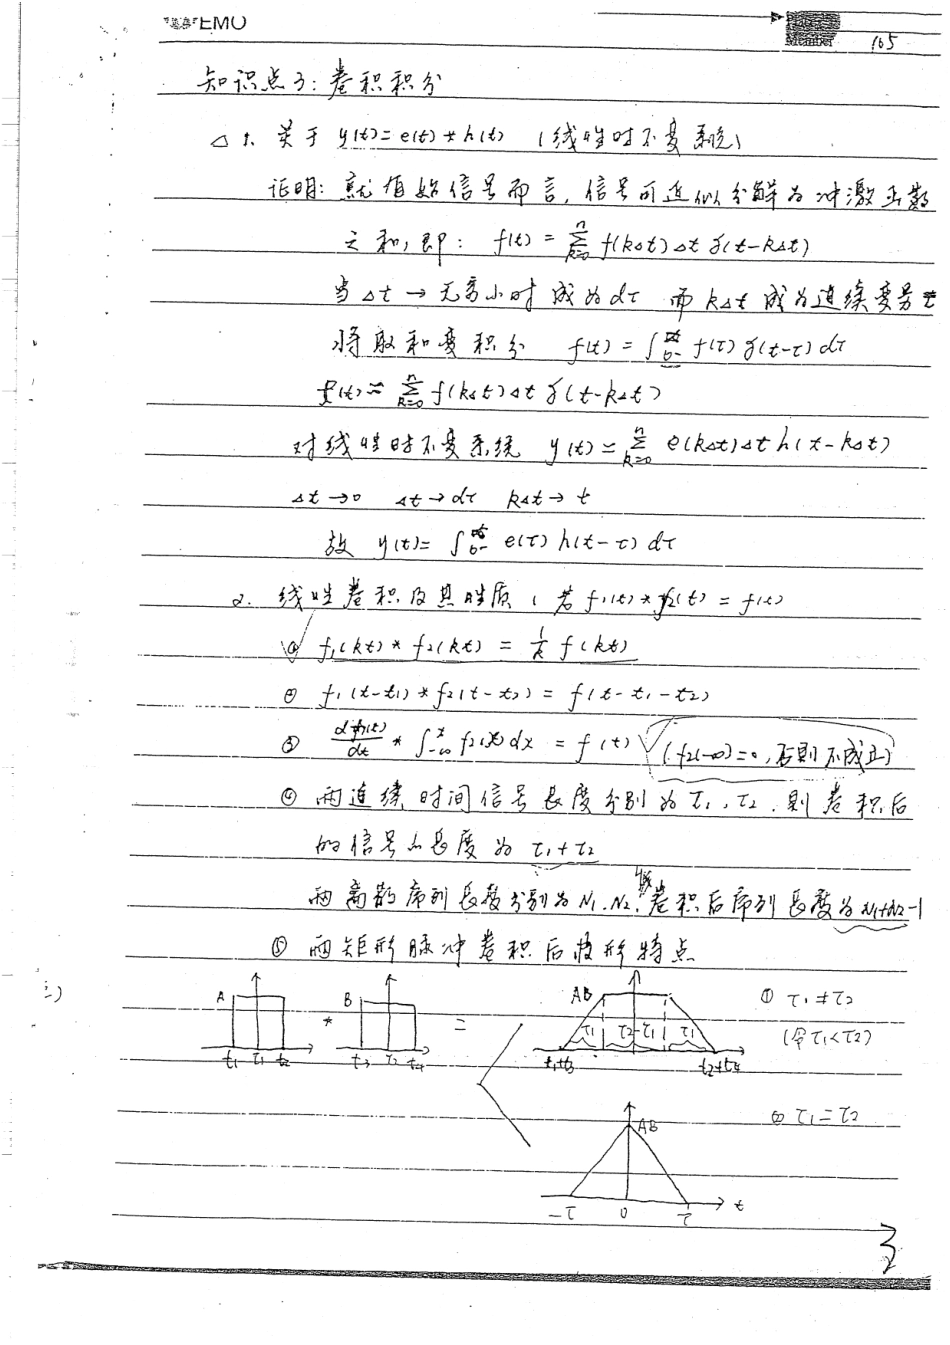 MEMO
165
知识点3：卷积积分
△ 1. 关于 y(t)=e(t)*h(t) (线性时不变系统)
证明：就值始信号而言，信号可近似分解为冲激函数
之和，即： f(t) = ∑_{k=0}^{n} f(k△t)△t δ(t-k△t)
当△t → 无穷小时 成为dτ 而 k△t 成为连续变号 τ
将取和变积分 f(t) = ∫_{0-} f(τ) δ(t-τ) dτ
(t) ≈ ∑_{k=0}^{n} f(k△t)△t δ(t-k△t)
对线性时不变系统 y(t) = ∑_{k=0}^{n} e(k△t)△t h(t-k△t)
△t → 0 △t → dτ k△t → τ
故 y(t)= ∫_{0-} e(τ) h(t-τ) dτ
2. 线性卷积及其性质 (若 f1(t)*f2(t) = f(t)
① f1(kt) * f2(kt) = 1/k f(kt)
② f1(t-t1) * f2(t-t2) = f(t-t1-t2)
③ df1(t)/dt * ∫_{-∞}^{t} f2(x)dx = f(t) (f2(-∞)=0, 否则不成立)
④ 两连续时间信号长度分别为 τ1, τ2. 则卷积后
的信号长度为 τ1+τ2
两离散序列长度分别为 N1. N2, 卷积后序列长度为 N1+N2-1
⑤ 两矩形脉冲卷积后波形特点
A t1 τ1 t2 * B t3 τ2 t4 = AB τ1 τ2-τ1 τ1 t1+t3 t2+t4 ① τ1≠τ2
(令τ1<τ2)
AB ② τ1=τ2
-τ 0 τ t